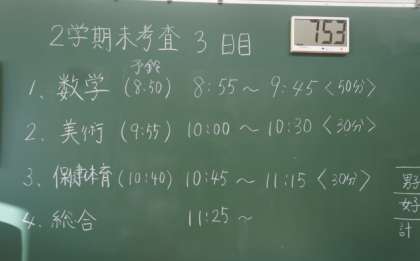 2学期末考査 3日目
7:53
予鈴
1、数学 (8:50) 8:55～9:45〈50分〉
2、美術 (9:55) 10:00～10:30〈30分〉
3、保健体育 (10:40) 10:45～11:15〈30分〉
4、総合 11:25～
男子
女子
計